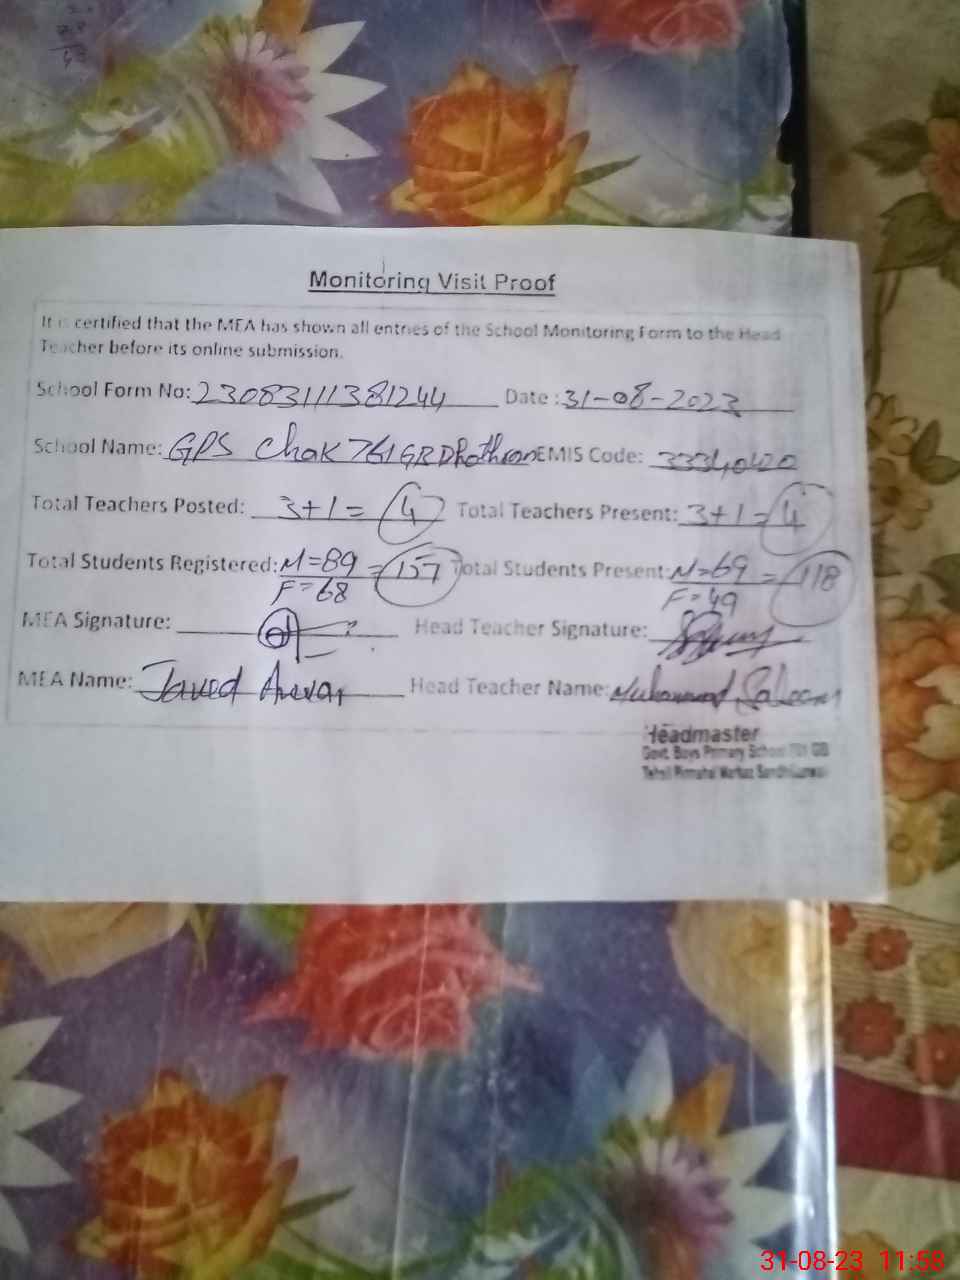 Monitoring Visit Proof
It is certified that the MEA has shown all entries of the School Monitoring Form to the Head
Teacher before its online submission.
School Form No: 23083111381244 Date : 31-08-2023
School Name: GPS Chak 761 GB Dhothran EMIS Code: 33340420
Total Teachers Posted: 3+1= 4 Total Teachers Present: 3+1= 4
Total Students Registered: M=89 = 157 Total Students Present: M=69 = 118
F=68 F=49
MEA Signature: Head Teacher Signature:
MEA Name: Javed Anwar Head Teacher Name: Muhammad Saleem
Headmaster
Govt. Boys Primary School 761 GB
Tehsil Pirmahal Markaz
31-08-23 11:58